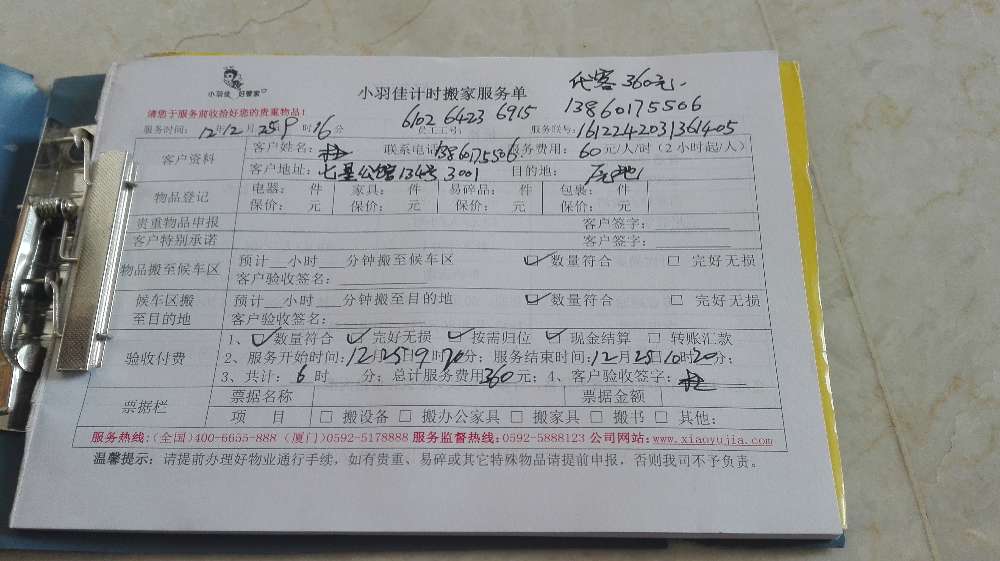 小羽佳 好管家
代客 360元
小羽佳计时搬家服务单
13860175506
请您于服务前收拾好您的贵重物品!
6102 6423 6915
服务时间: 12年12月25日9时16分 员工工号: 服务联号: 1612242031361405
客户资料
客户姓名: 联系电话 13860175506 服务费用: 60元/人/时(2小时起/人)
客户地址: 七星公馆134号3001 目的地:
物品登记
电器: 件 家具: 件 易碎品: 件 包裹: 件
保价: 元 保价: 元 保价: 元 保价: 元
贵重物品申报 客户签字:
客户特别承诺 客户签字:
物品搬至候车区
预计__小时___分钟搬至候车区 ☑数量符合 □ 完好无损
客户验收签名:
候车区搬至目的地
预计__小时___分钟搬至目的地 ☑数量符合 □ 完好无损
客户验收签名:
验收付费
1、☑数量符合 ☑完好无损 ☑按需归位 ☑现金结算 □ 转账汇款
2、服务开始时间:12月25日9时20分; 服务结束时间:12月25日10时20分;
3、共计: 6时___分; 总计服务费用360元; 4、客户验收签字:
票据栏
票据名称 票据金额
项 目 □ 搬设备 □ 搬办公家具 □ 搬家具 □ 搬书 □ 其他:
服务热线:(全国)400-6655-888 (厦门)0592-5178888 服务监督热线:0592-5888123 公司网站:www.xiaoyujia.com
温馨提示: 请提前办理好物业通行手续, 如有贵重、易碎或其它特殊物品请提前申报, 否则我司不予负责。